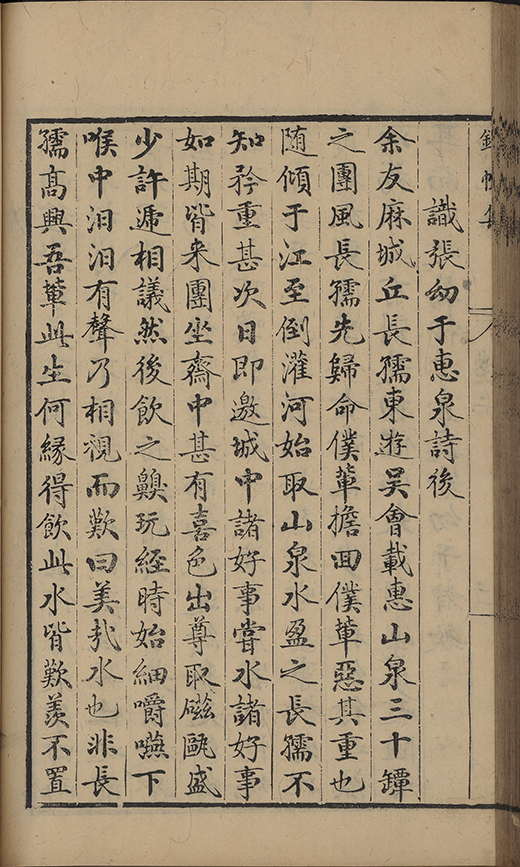 識張幼于惠泉詩後
余友麻城丘長孺東遊吳會載惠山泉三十罈
之團風長孺先歸命僕輩擔回僕輩惡其重也
随傾于江至倒灌河始取山泉水盈之長孺不
知矜重甚次日即邀城中諸好事嘗水諸好事
如期皆来團坐齋中甚有喜色出尊取磁甌盛
少許遞相議然後飲之齅玩經時始細嚼嚥下
喉中汩汩有聲乃相視而歎曰美哉水也非長
孺髙興吾輩此生何縁得飲此水皆歎羨不置